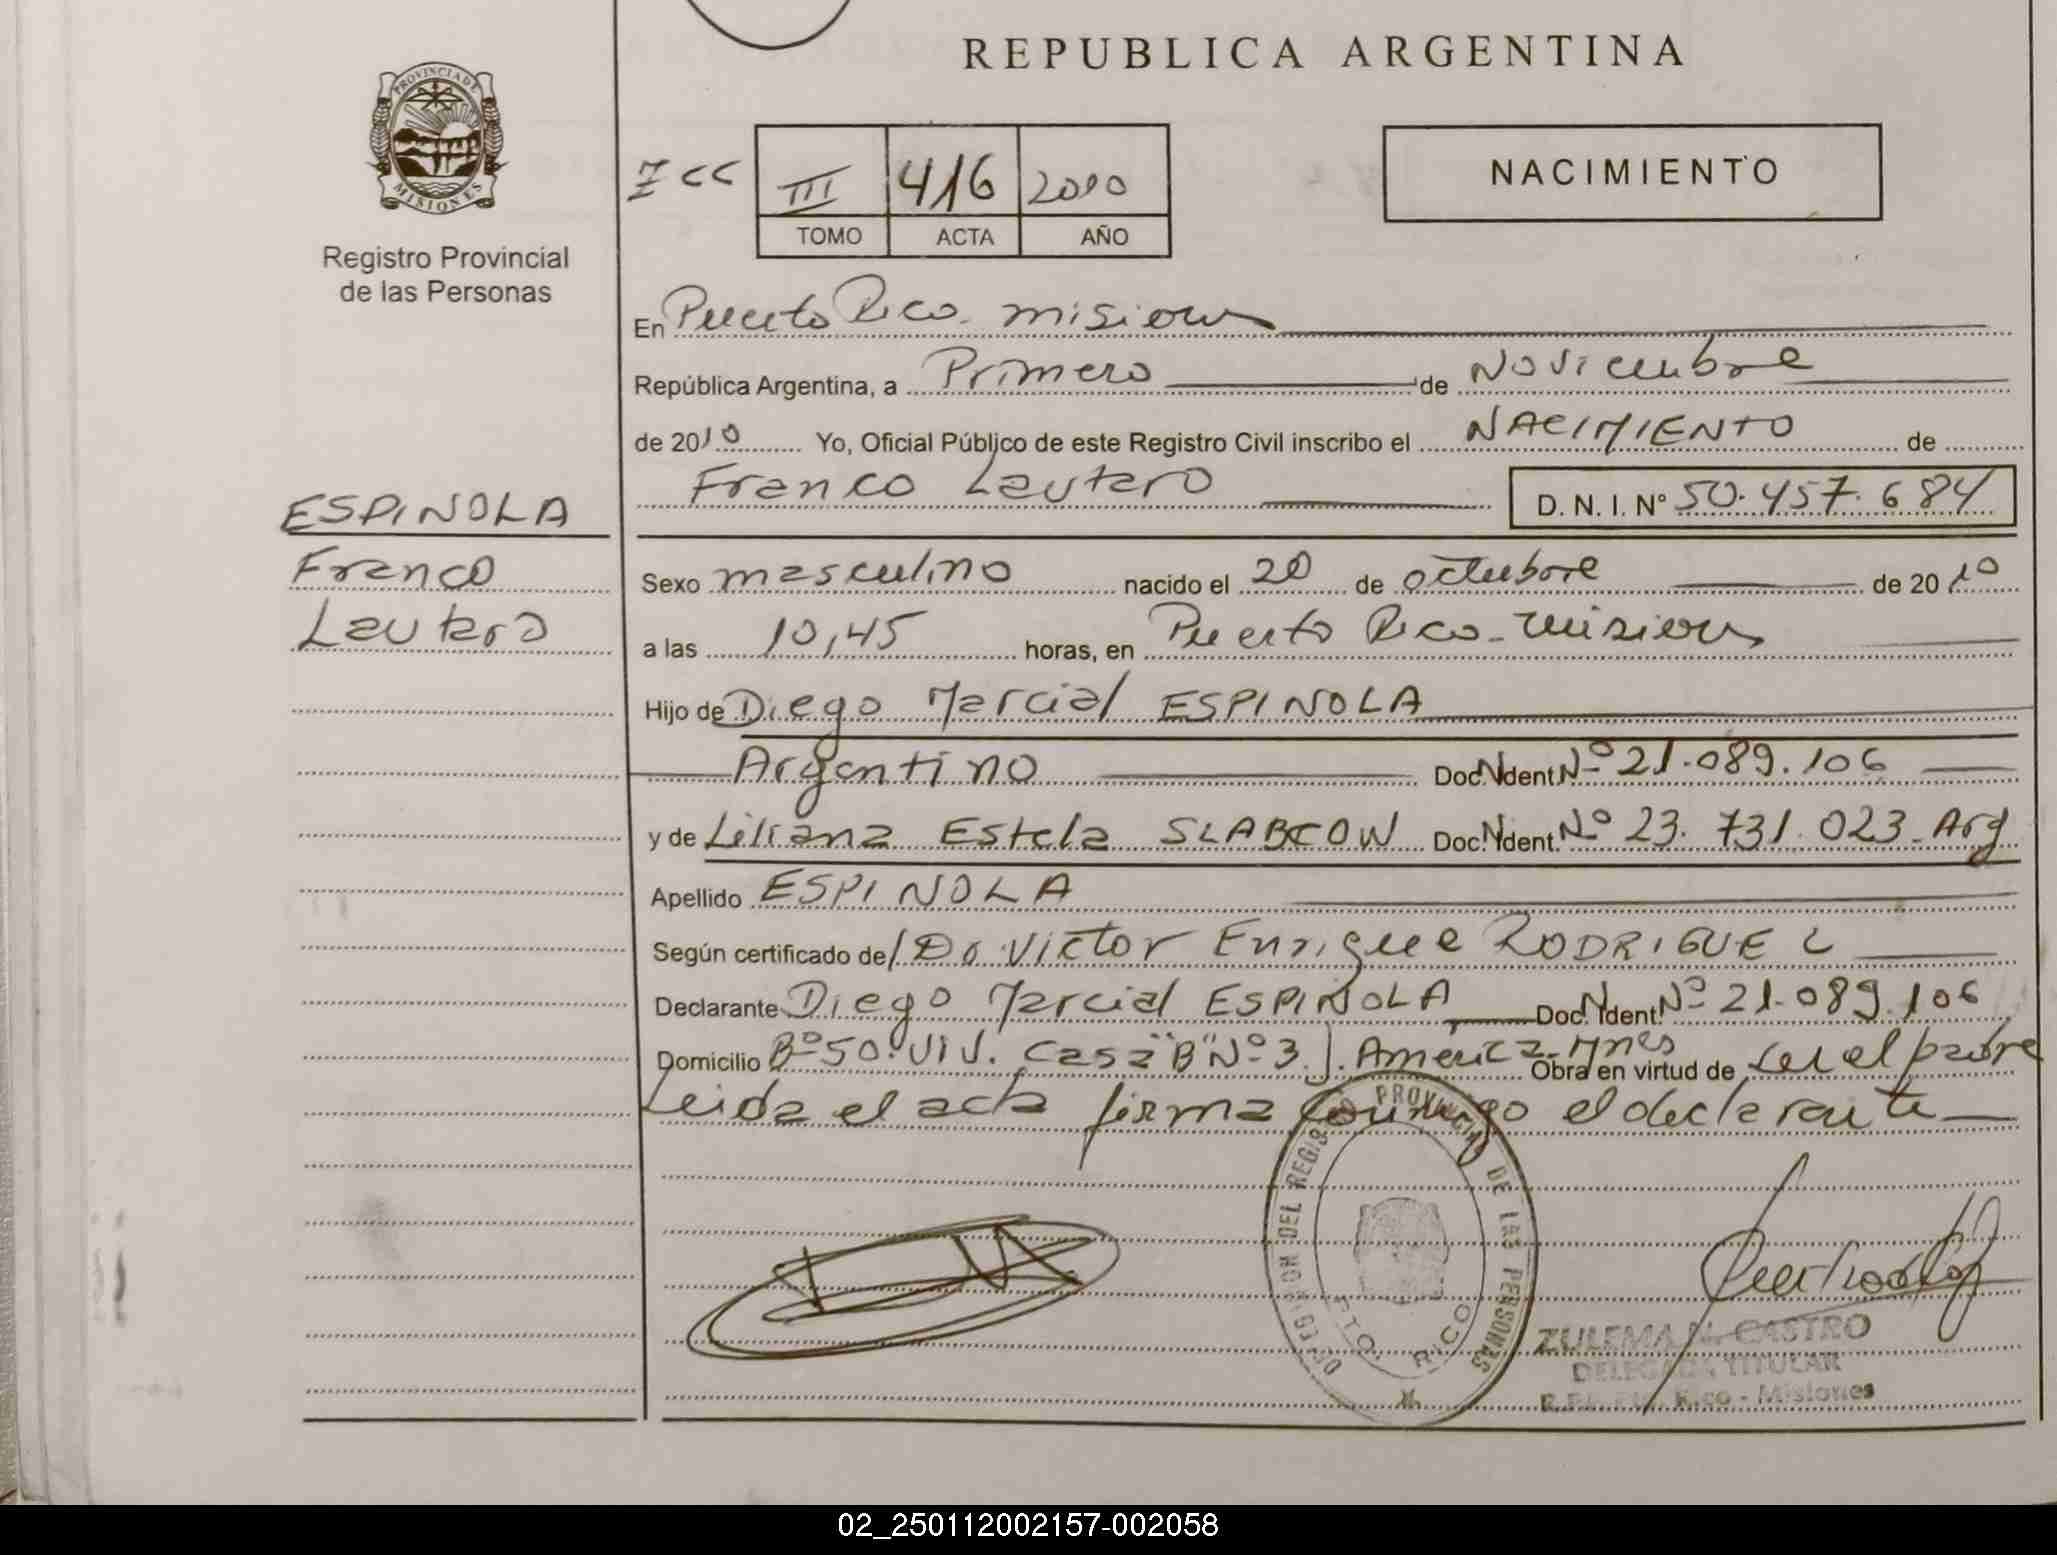 REPUBLICA ARGENTINA
PROVINCIA DE
MISIONES
Registro Provincial
de las Personas
III 416 2010
TOMO ACTA AÑO
NACIMIENTO
En Puerto Rico - misiones
República Argentina, a Primero de Noviembre
de 2010 Yo, Oficial Público de este Registro Civil inscribo el NACIMIENTO de
Franco Lautaro D. N. I. N° 50.457.684
ESPINOLA
Franco
Lautaro
Sexo masculino nacido el 20 de octubre de 2010
a las 10,45 horas, en Puerto Rico - misiones
Hijo de Diego Marcial ESPINOLA
Argentino Doc. Ident. Nº 21.089.106
y de Liliana Estela SLABCOW Doc. Ident. Nº 23.731.023 - Arg
Apellido ESPINOLA
Según certificado del Dr. Victor Enrique RODRIGUEZ
Declarante Diego Marcial ESPINOLA Doc. Ident. Nº 21.089.106
Domicilio Bº 50. Viv. Casa "B" Nº 3 J. América - Mnes Obra en virtud de ser el padre
Leida el acta firma conmigo el declarante
DELEGACION DEL REGISTRO PROVINCIAL DE LAS PERSONAS
PTO. RICO
ZULEMA N. CASTRO
DELEGADA TITULAR
R.P.P. Pto. Rico - Misiones
02_250112002157-002058